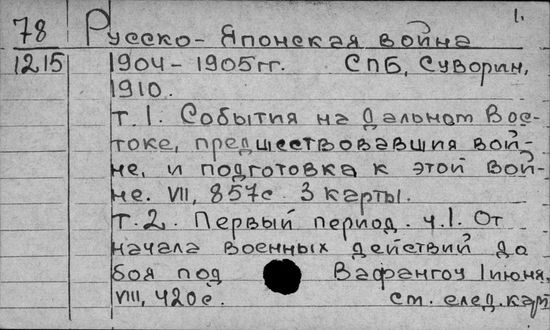 1.
78 Русско-Японская война
1215 1904-1905гг. СПБ, Суворин,
1910.
т.1. События на Дальнем Вос-
токе, предшествовавшия вой-
не, и подготовка к этой вой-
не. VII, 857с. 3 карты.
Т.2. Первый период. ч.1. От
начала военных действий до
боя под Вафангоу 1 июня.
VIII, 420с. см. след. карт